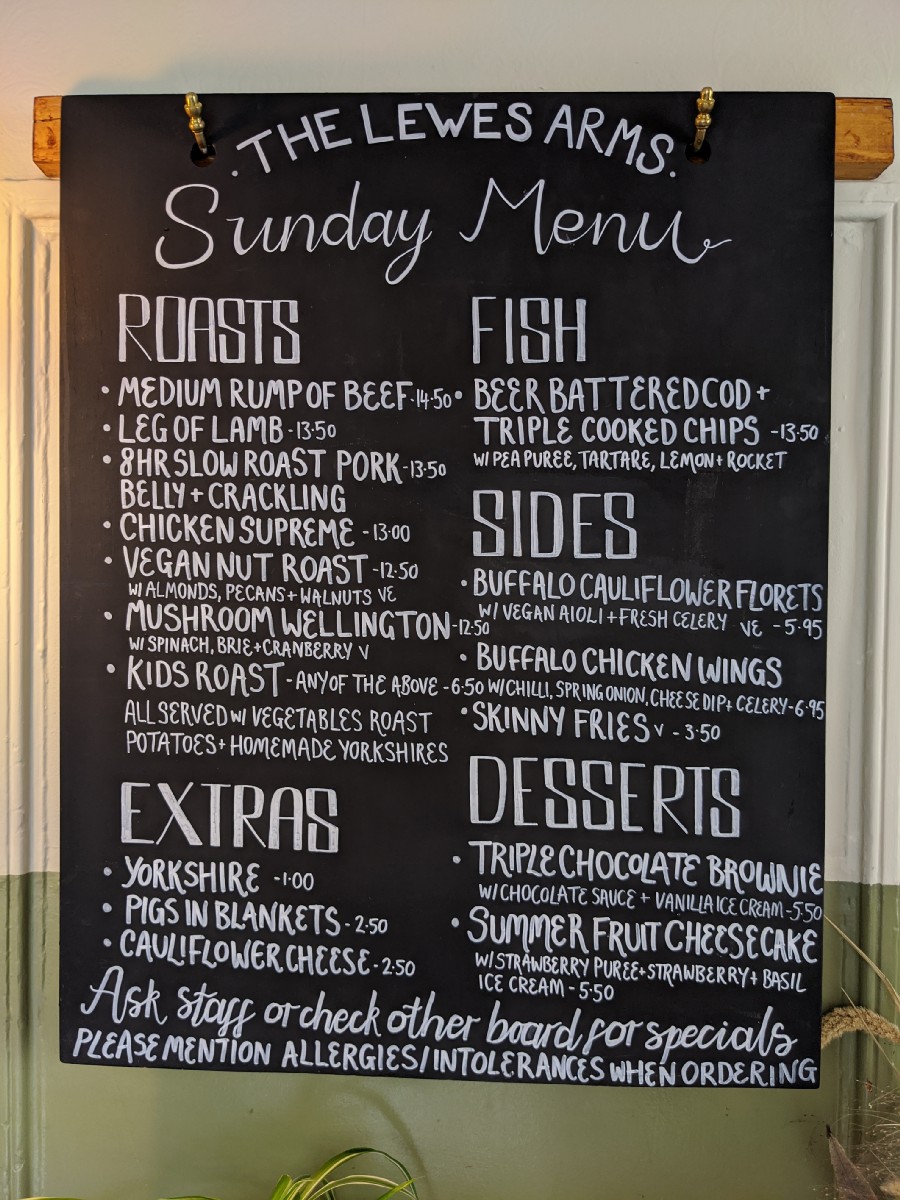 .THE LEWES ARMS.
Sunday Menu
ROASTS
• MEDIUM RUMP OF BEEF-14·50
• LEG OF LAMB-13·50
• 8HR SLOW ROAST PORK-13·50
BELLY + CRACKLING
• CHICKEN SUPREME -13·00
• VEGAN NUT ROAST -12·50
W/ ALMONDS, PECANS + WALNUTS VE
• MUSHROOM WELLINGTON-12·50
W/ SPINACH, BRIE+CRANBERRY V
• KIDS ROAST-ANY OF THE ABOVE -6·50
ALL SERVED W/ VEGETABLES ROAST
POTATOES+ HOMEMADE YORKSHIRES
EXTRAS
• YORKSHIRE -1·00
• PIGS IN BLANKETS-2·50
• CAULIFLOWER CHEESE-2·50
FISH
• BEER BATTERED COD +
TRIPLE COOKED CHIPS -13·50
W/ PEA PUREE, TARTARE, LEMON+ ROCKET
SIDES
• BUFFALO CAULIFLOWER FLORETS
W/ VEGAN AIOLI + FRESH CELERY VE -5·95
• BUFFALO CHICKEN WINGS
W/CHILLI, SPRING ONION, CHEESE DIP+ CELERY-6·95
• SKINNY FRIES V -3·50
DESSERTS
• TRIPLE CHOCOLATE BROWNIE
W/CHOCOLATE SAUCE + VANILLA ICE CREAM-5·50
• SUMMER FRUIT CHEESECAKE
W/STRAWBERRY PUREE+STRAWBERRY+ BASIL
ICE CREAM-5·50
Ask staff or check other board for specials
PLEASE MENTION ALLERGIES/INTOLERANCES WHEN ORDERING